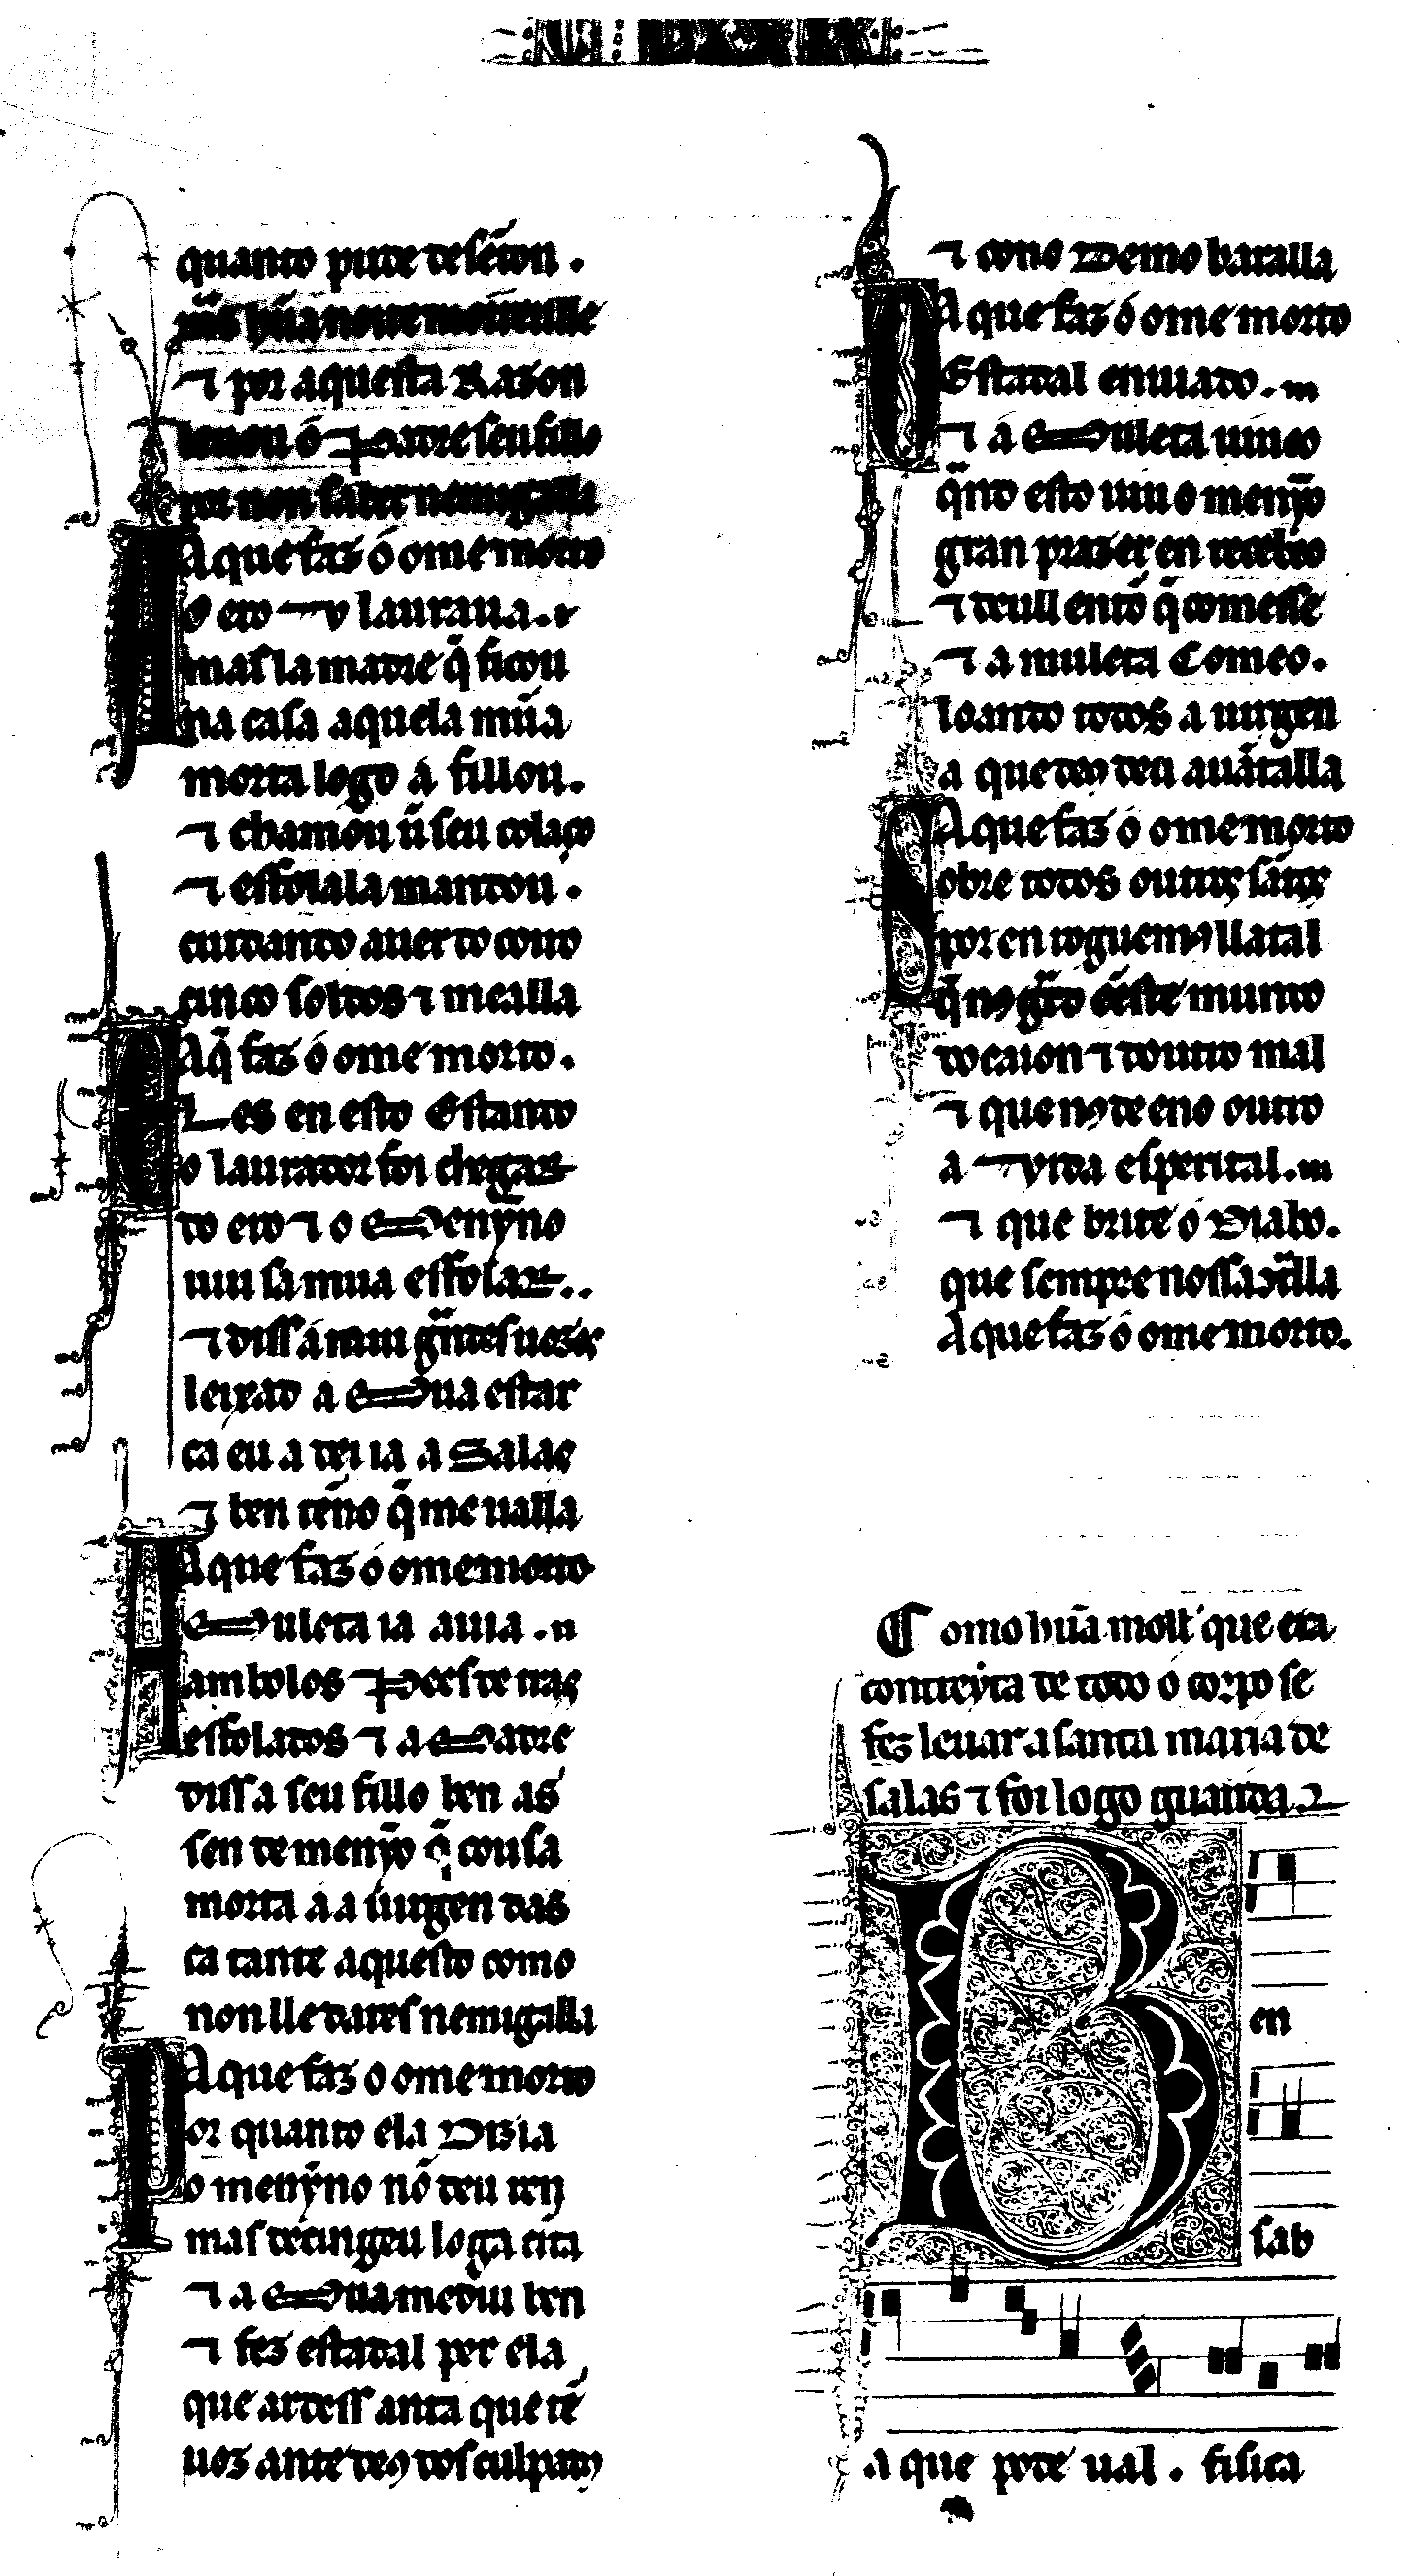 quanto pude de sẽton .
mais hũa noite morreulle
⁊ por aquesta Razon
leuou ó Padre seu fillo
por non fazer nemigalla
A que faz ó ome morto
Pero y lauraua . v
mas la madre q̃ ficou
na casa aquela mũa
morta logo á fillou .
⁊ chamou ũ seu colaço
⁊ esfolala mandou .
cuidando auer do coiro
cinco soldos ⁊ mealla
A q̃ faz ó ome morto .
Eles en esto Estando
o laurador foi chegar
do ero ⁊ o Menỹno
uiu sa mua esfolar ..
⁊ diss á mui grãdes uozes
leixad a Mua estar
ca eu a dei ia a Salas
⁊ ben tẽno q̃ me ualla
A que faz ó ome morto
A Muleta ia auia . ii
ambolos Pees de tras
esfolados ⁊ a Madre
diss a seu fillo ben as
sen de menỹo q̃ cousa
morta á a uirgen das
ca tanto aquesto como
non lle dares nemigalla
A que faz o ome morto
Por quanto ela Dizia
o menỹno nõ deu ren
mas decingeu log a cita
⁊ a Mua mediu ben
⁊ fez estadal per ela
que ardess anta que tẽ
uoz ante deꝯ dos culpados
⁊ cono Demo baralla
A que faz ó ome morto
O Estadal enuiado . iii
⁊ á Muleta uiueo
q̃ndo esto uiu o menỹo
gran prazer en recebeo
⁊ deull entõ q̃ comesse
⁊ a muleta Comeo .
loando todos a uirgen
a que deꝯ deu auãtalla
A que faz ó ome morto
Sobre todos outros sãtos
por en roguemꝯ lla tal
q̃ nꝯ gũde ẽ este mundo
docaion ⁊ doutro mal
⁊ que nꝯ de eno outro
a vyda esperital . iii
⁊ que brite ó Diabo .
que sempre nossa cõtralla
A que faz ó ome morto .
Como hũa moll' que era
contreyta de todo ó corpo se
fez leuar a santa maria de
salas ⁊ foi logo guarida .
Ben
sab
a que pode ual . fisica